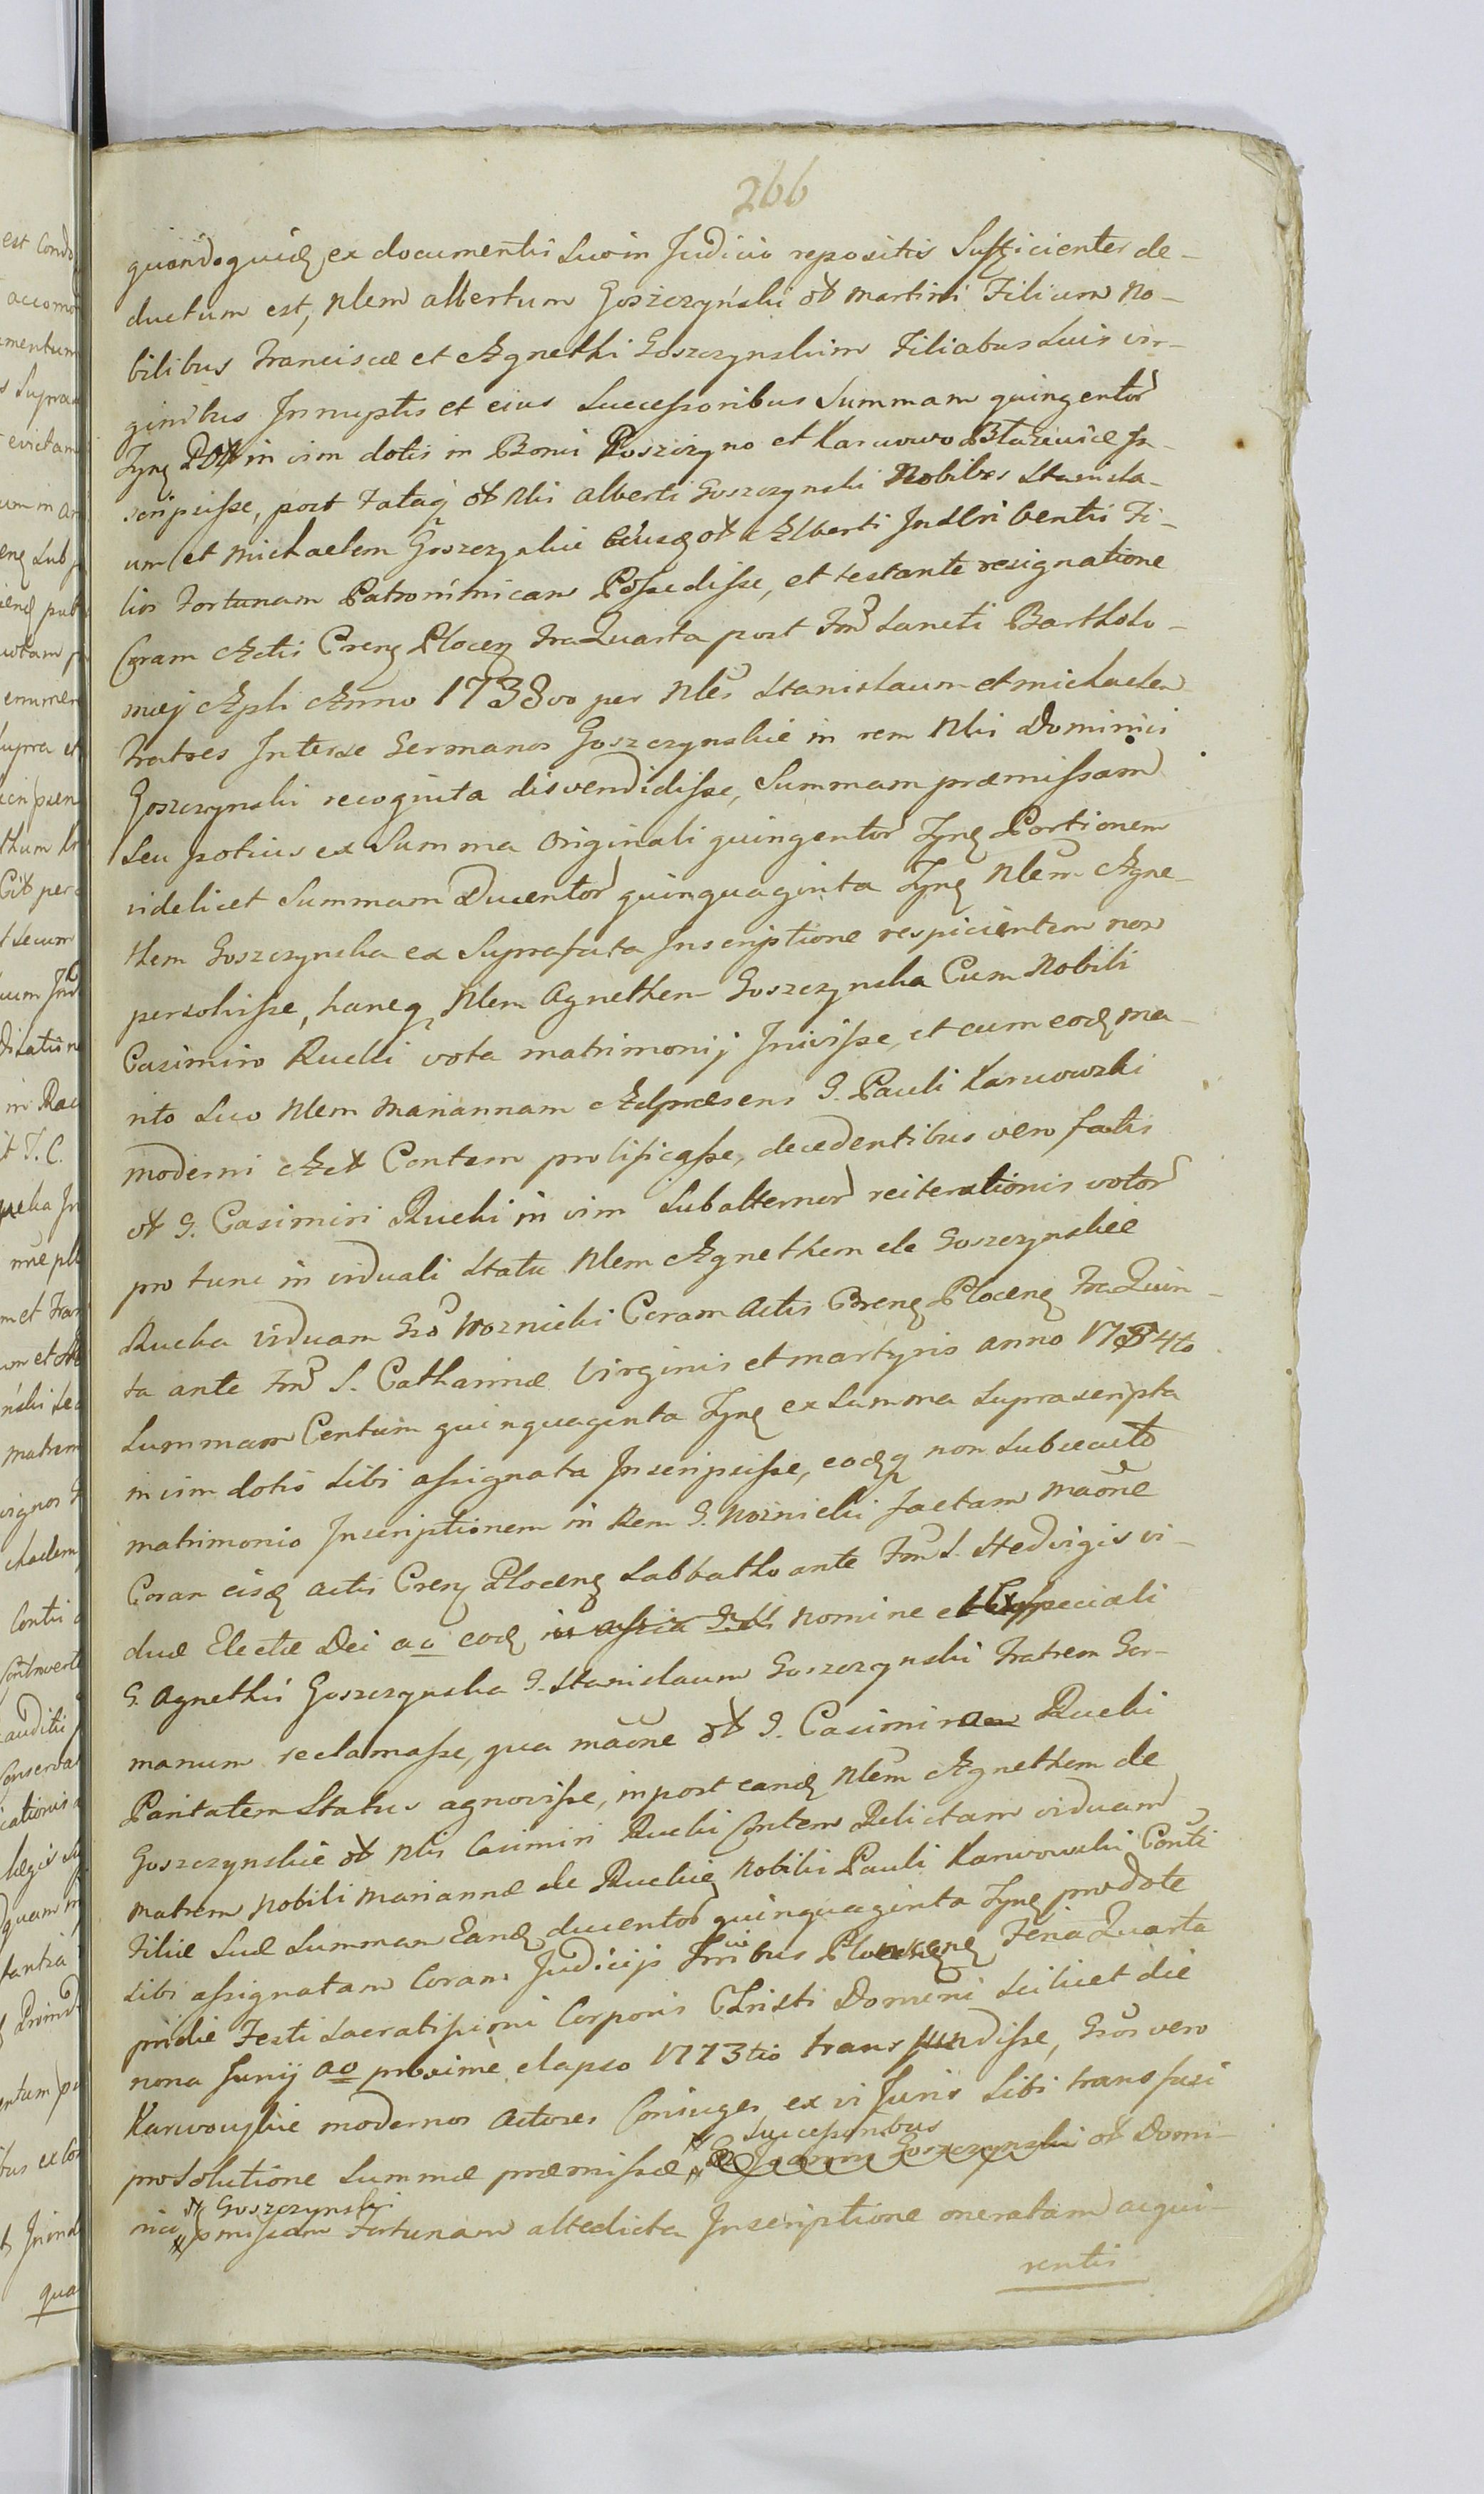 266
quandoquid ex documentis suo in Judicio repositis Sufficienter de-
ductum est, Nlem Albertum Goszczyński ol Martini Filium No-
bilibus Franciscæ et Agnethi Goszczynskim Filiabus suis vir-
ginibus Innuptis et eius Successoribus Summam quingentor
Fynq Pol in vim dotis in Bonis Roszczyno et Karwowo Błażewice In-
scripsisse, post Fataq ol Nlis Alberti Goszczynski Nobiles Stanisla-
um et Michaelem Goszczynskie eiusq ol Alberti Inscribentis Fi-
lios Fortunam Patronimicam Possedisse, et testante resignatione
Coram Actis Cren Plocen Fra Quarta post Fm Sancti Bartholo-
mæj Apli Anno 1738vo per Nles Stanislaum et Michaelem
Fratres Interse Germanos Goszczynskie in rem Nlis Dominici
Goszczynski recognita disvendidisse, Summam præmissam
seu potius ex Summa Originali quingentor Fynq Portionem
videlicet Summam Ducentor quinquaginta Fynq Nlem Agne-
them Goszczynska ex Suprafata Inscriptione respicientem non
persolvisse, hancq Nlem Agnethem Goszczynska Cum Nobili
Casimiro Rucki vota matrimonij Inivisse, et cum eodq ma-
rito Suo Nlem Mariannam Adpræsens G. Pauli Karwowski
moderni Act Contem prolificasse, decedentibus vero fatis
ol G. Casimiri Rucki in vim Subalternor reiterationis votor
pro tunc in viduali Statu Nlem Agnethem de Goszczynskie
Rucka viduam Gso Woznicki Coram Actis Crenq Plocenq Fra Quin-
ta ante Fm S. Catharinæ Virginis et Martyris Anno 1734to
Summam Centum quinquaginta Fynq ex Summa Suprascripta
in vim dotis Sibi assignata Inscripsisse, eodqq non Subsecuto
matrimonio Inscriptionem in Rem G. Woznicki factam maone
Coram eisq actis Cren Plocenq Sabbatho ante Fm S. Hedvigis vi-
duæ Electæ Dei ao eodq nomine et speciali
G. Agnethis Goszczynska G. Stanislaum Goszczynski Fratrem Ger-
manum reclamasse, qua maone ol G. Casimiro Rucki
Paritatem Status agnovisse, inpost eandq Nlem Agnethem de
Goszczynskie ol Nlis Casimiri Rucki Contem Relictam viduam
Matrem Nobili Mariannæ de Ruckie Nobilis Pauli Karwowski Conti
Filiæ Suæ Summam Eandq ducentor quinquaginta Fynq pro dote
Sibi assignatam Coram Judicijs Plocenq Feria Quarta
pridie Festi Sacratissimi Corporis Christi Domini Scilicet die
nona Junij ao proxime elapso 1773tio transfundisse, Gsos vero
Karwowskie modernos Actores Coniuges ex vi Juris Sibi transfusi
pro Solutione Summæ præmissæ Successoribus Joanni Goszczynski ol Domi-
nici Goszczynski pmissam Fortunam altedicta Inscriptione oneratam acqui-
rentis